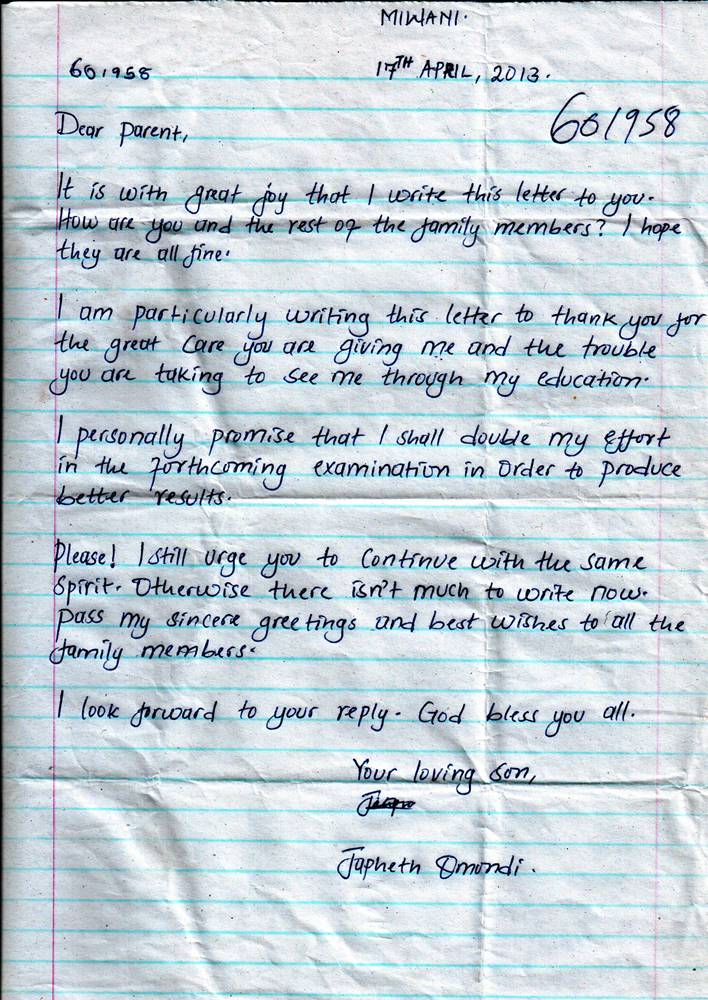 MIWANI.
601958
17TH APRIL, 2013.
601958
Dear parent,
It is with great joy that I write this letter to you.
How are you and the rest of the family members? I hope
they are all fine.
I am particularly writing this letter to thank you for
the great care you are giving me and the trouble
you are taking to see me through my education.
I personally promise that I shall double my effort
in the forthcoming examination in order to produce
better results.
Please! I still urge you to continue with the same
spirit. Otherwise there isn't much to write now.
Pass my sincere greetings and best wishes to all the
family members.
I look forward to your reply. God bless you all.
Your loving son,
Japheth Omondi.